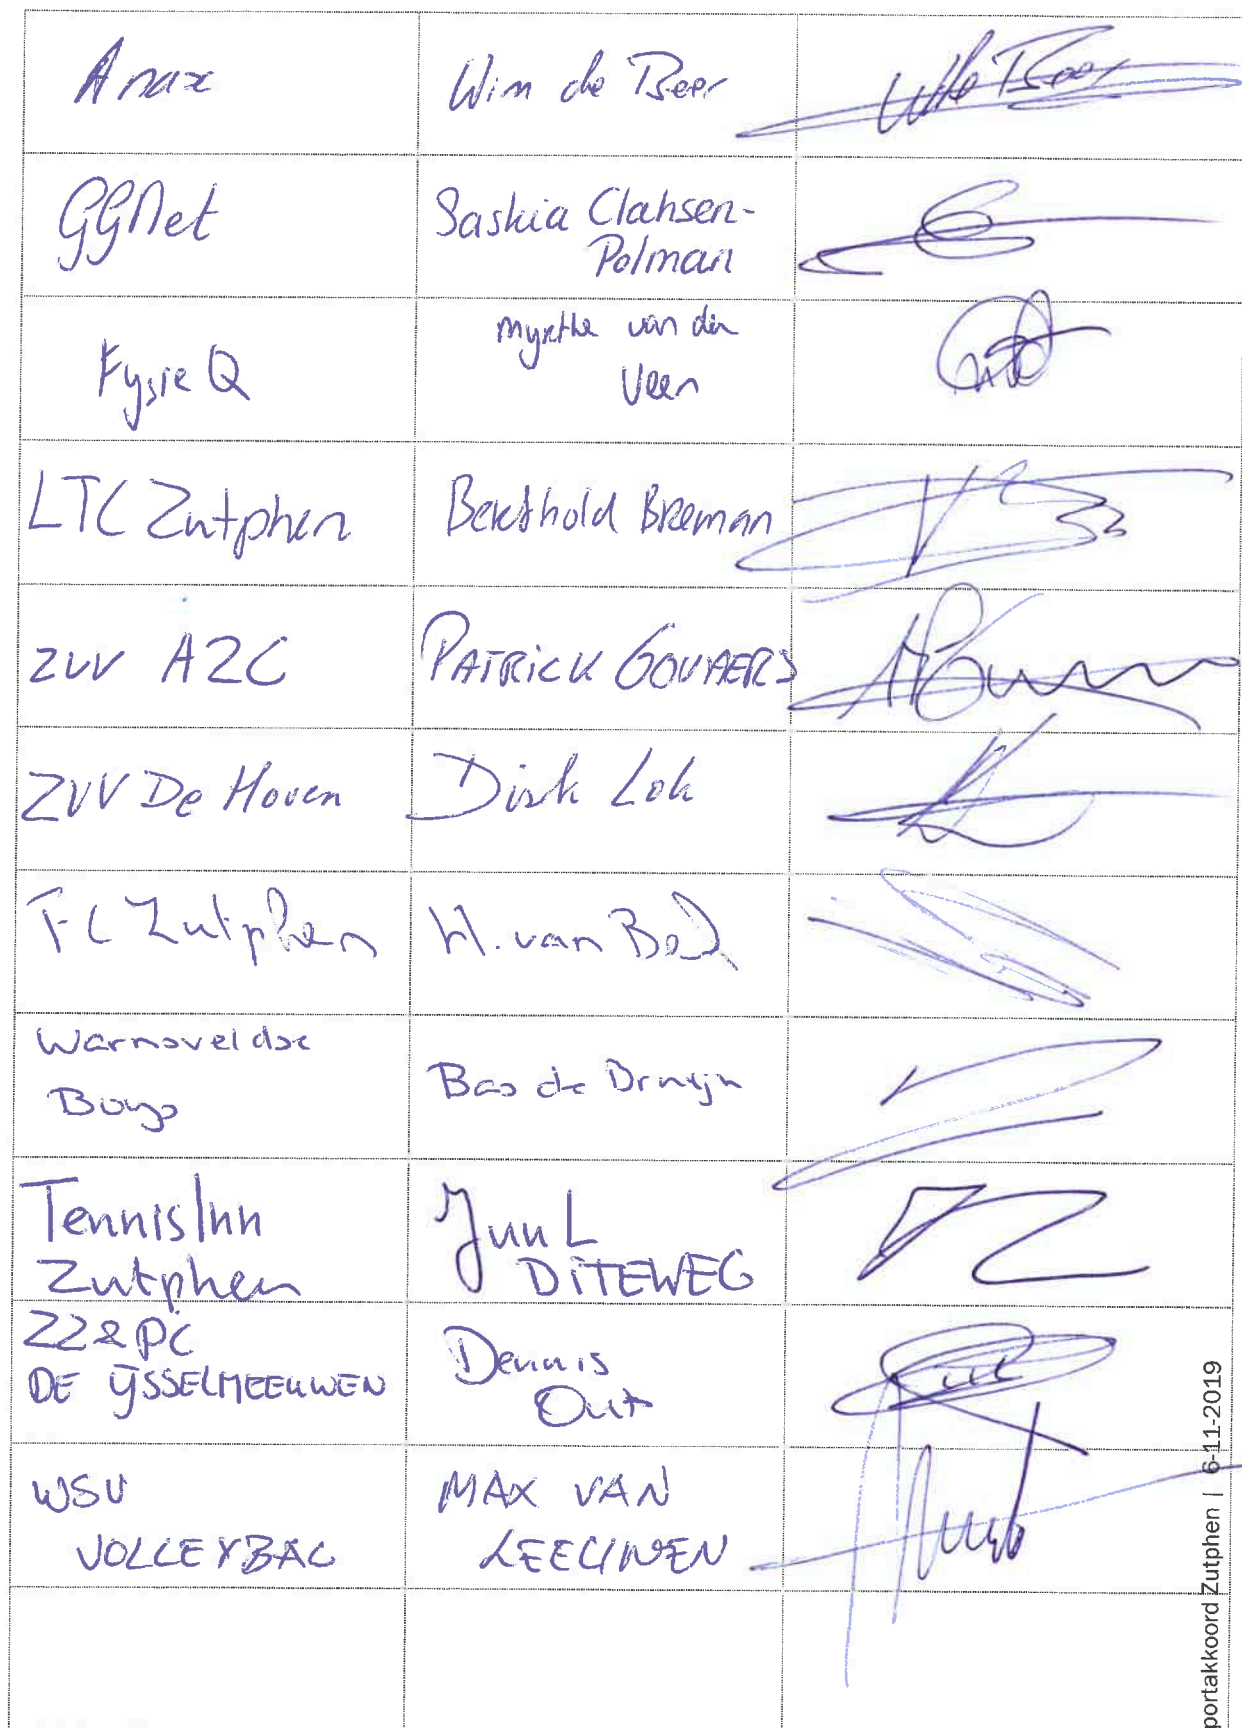 Anax
Wim de Beer
GGNet
Saskia Clahsen-
Polman
FysieQ
Myrthe van der
Veen
LTC Zutphen
Berthold Breman
ZVV AZC
PATRICK GOVAERS
ZVV De Hoven
Dirk Lok
FC Zutphen
H. van
Warnsveldse
Boys
Bas de Bruijn
Tennis Inn
Zutphen
Juul
DITEWEG
ZZ&PC
DE IJSSELMEEUWEN
Dennis
Out
WSV
VOLLEYBAL
MAX VAN
LEEUWEN
portakkoord Zutphen | 6-11-2019